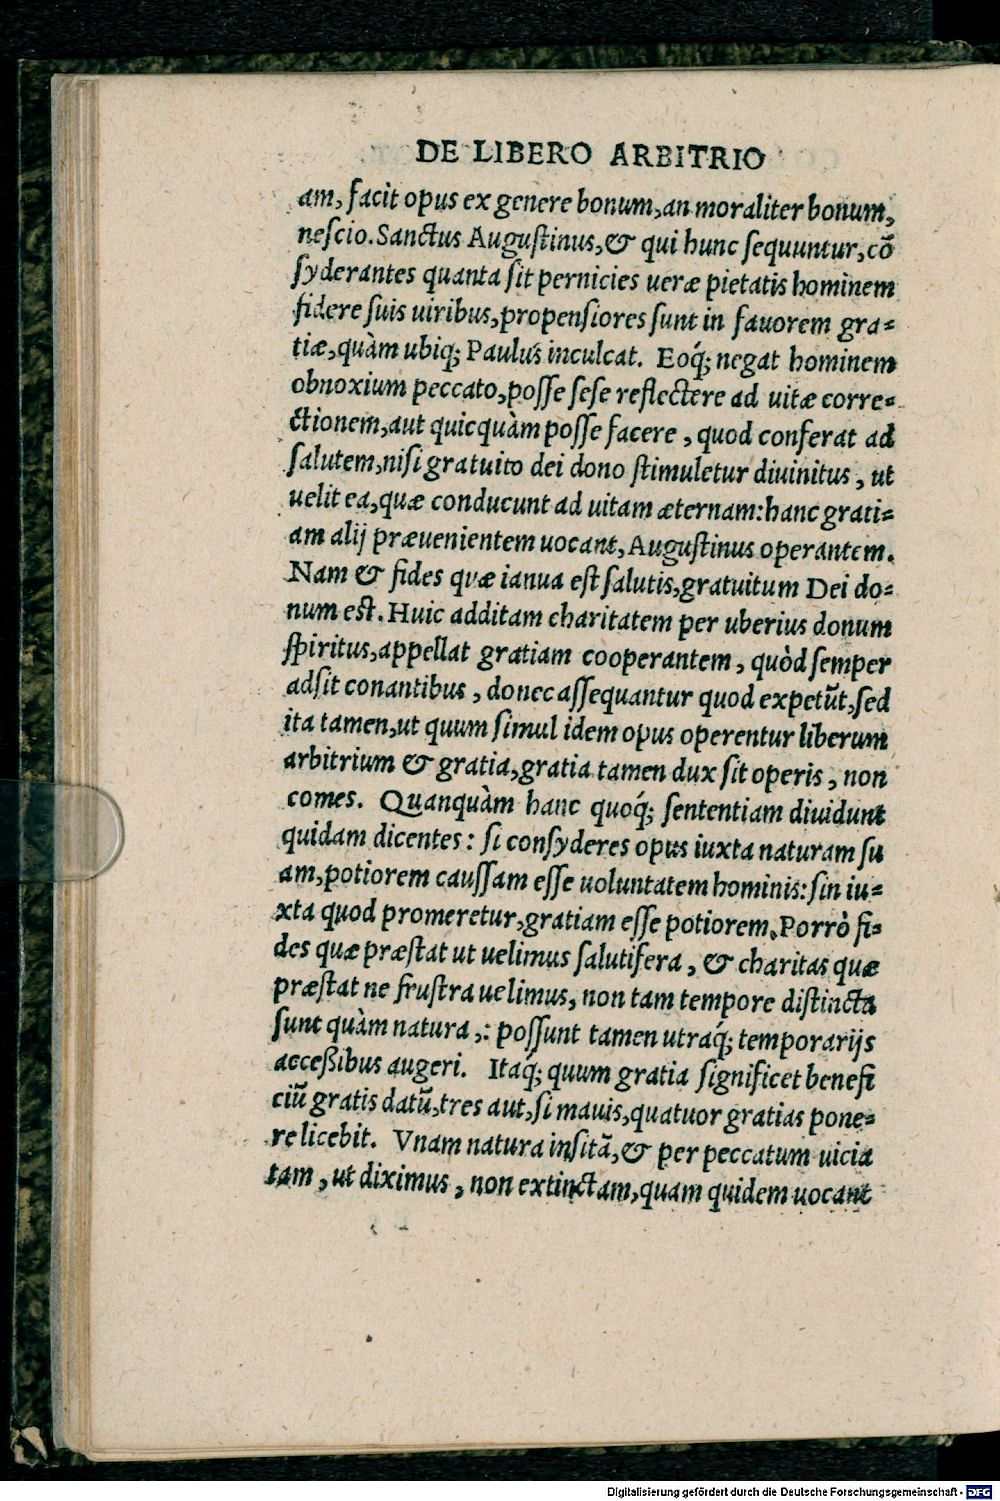 DE LIBERO ARBITRIO
am, facit opus ex genere bonum, an moraliter bonum,
nescio. Sanctus Augustinus, & qui hunc sequuntur, cō
syderantes quanta sit pernicies ueræ pietatis hominem
fidere suis uiribus, propensiores sunt in fauorem gra-
tiæ, quàm ubiq; Paulus inculcat. Eoq́; negat hominem
obnoxium peccato, posse sese reflectere ad uitæ corre-
ctionem, aut quicquàm posse facere, quod conferat ad
salutem, nisi gratuito dei dono stimuletur diuinitus, ut
uelit ea, quæ conducunt ad uitam æternam: hanc grati-
am alij præuenientem uocant, Augustinus operantem.
Nam & fides quæ ianua est salutis, gratuitum Dei do-
num est. Huic additam charitatem per uberius donum
spiritus, appellat gratiam cooperantem, quòd semper
adsit conantibus, donec assequantur quod expetūt, sed
ita tamen, ut quum simul idem opus operentur liberum
arbitrium & gratia, gratia tamen dux sit operis, non
comes. Quanquàm hanc quoq́; sententiam diuidunt
quidam dicentes: si consyderes opus iuxta naturam su
am, potiorem caussam esse uoluntatem hominis: sin iu-
xta quod promeretur, gratiam esse potiorem. Porrò fi-
des quæ præstat ut uelimus salutifera, & charitas quæ
præstat ne frustra uelimus, non tam tempore distincta
sunt quàm natura,: possunt tamen utraq́; temporarijs
acceßibus augeri. Itaq́; quum gratia significet benefi
ciū gratis datū, tres aut, si mauis, quatuor gratias pone-
re licebit. Vnam natura insitā, & per peccatum uicia
tam, ut diximus, non extinctam, quam quidem uocant
Digitalisierung gefördert durch die Deutsche Forschungsgemeinschaft - DFG